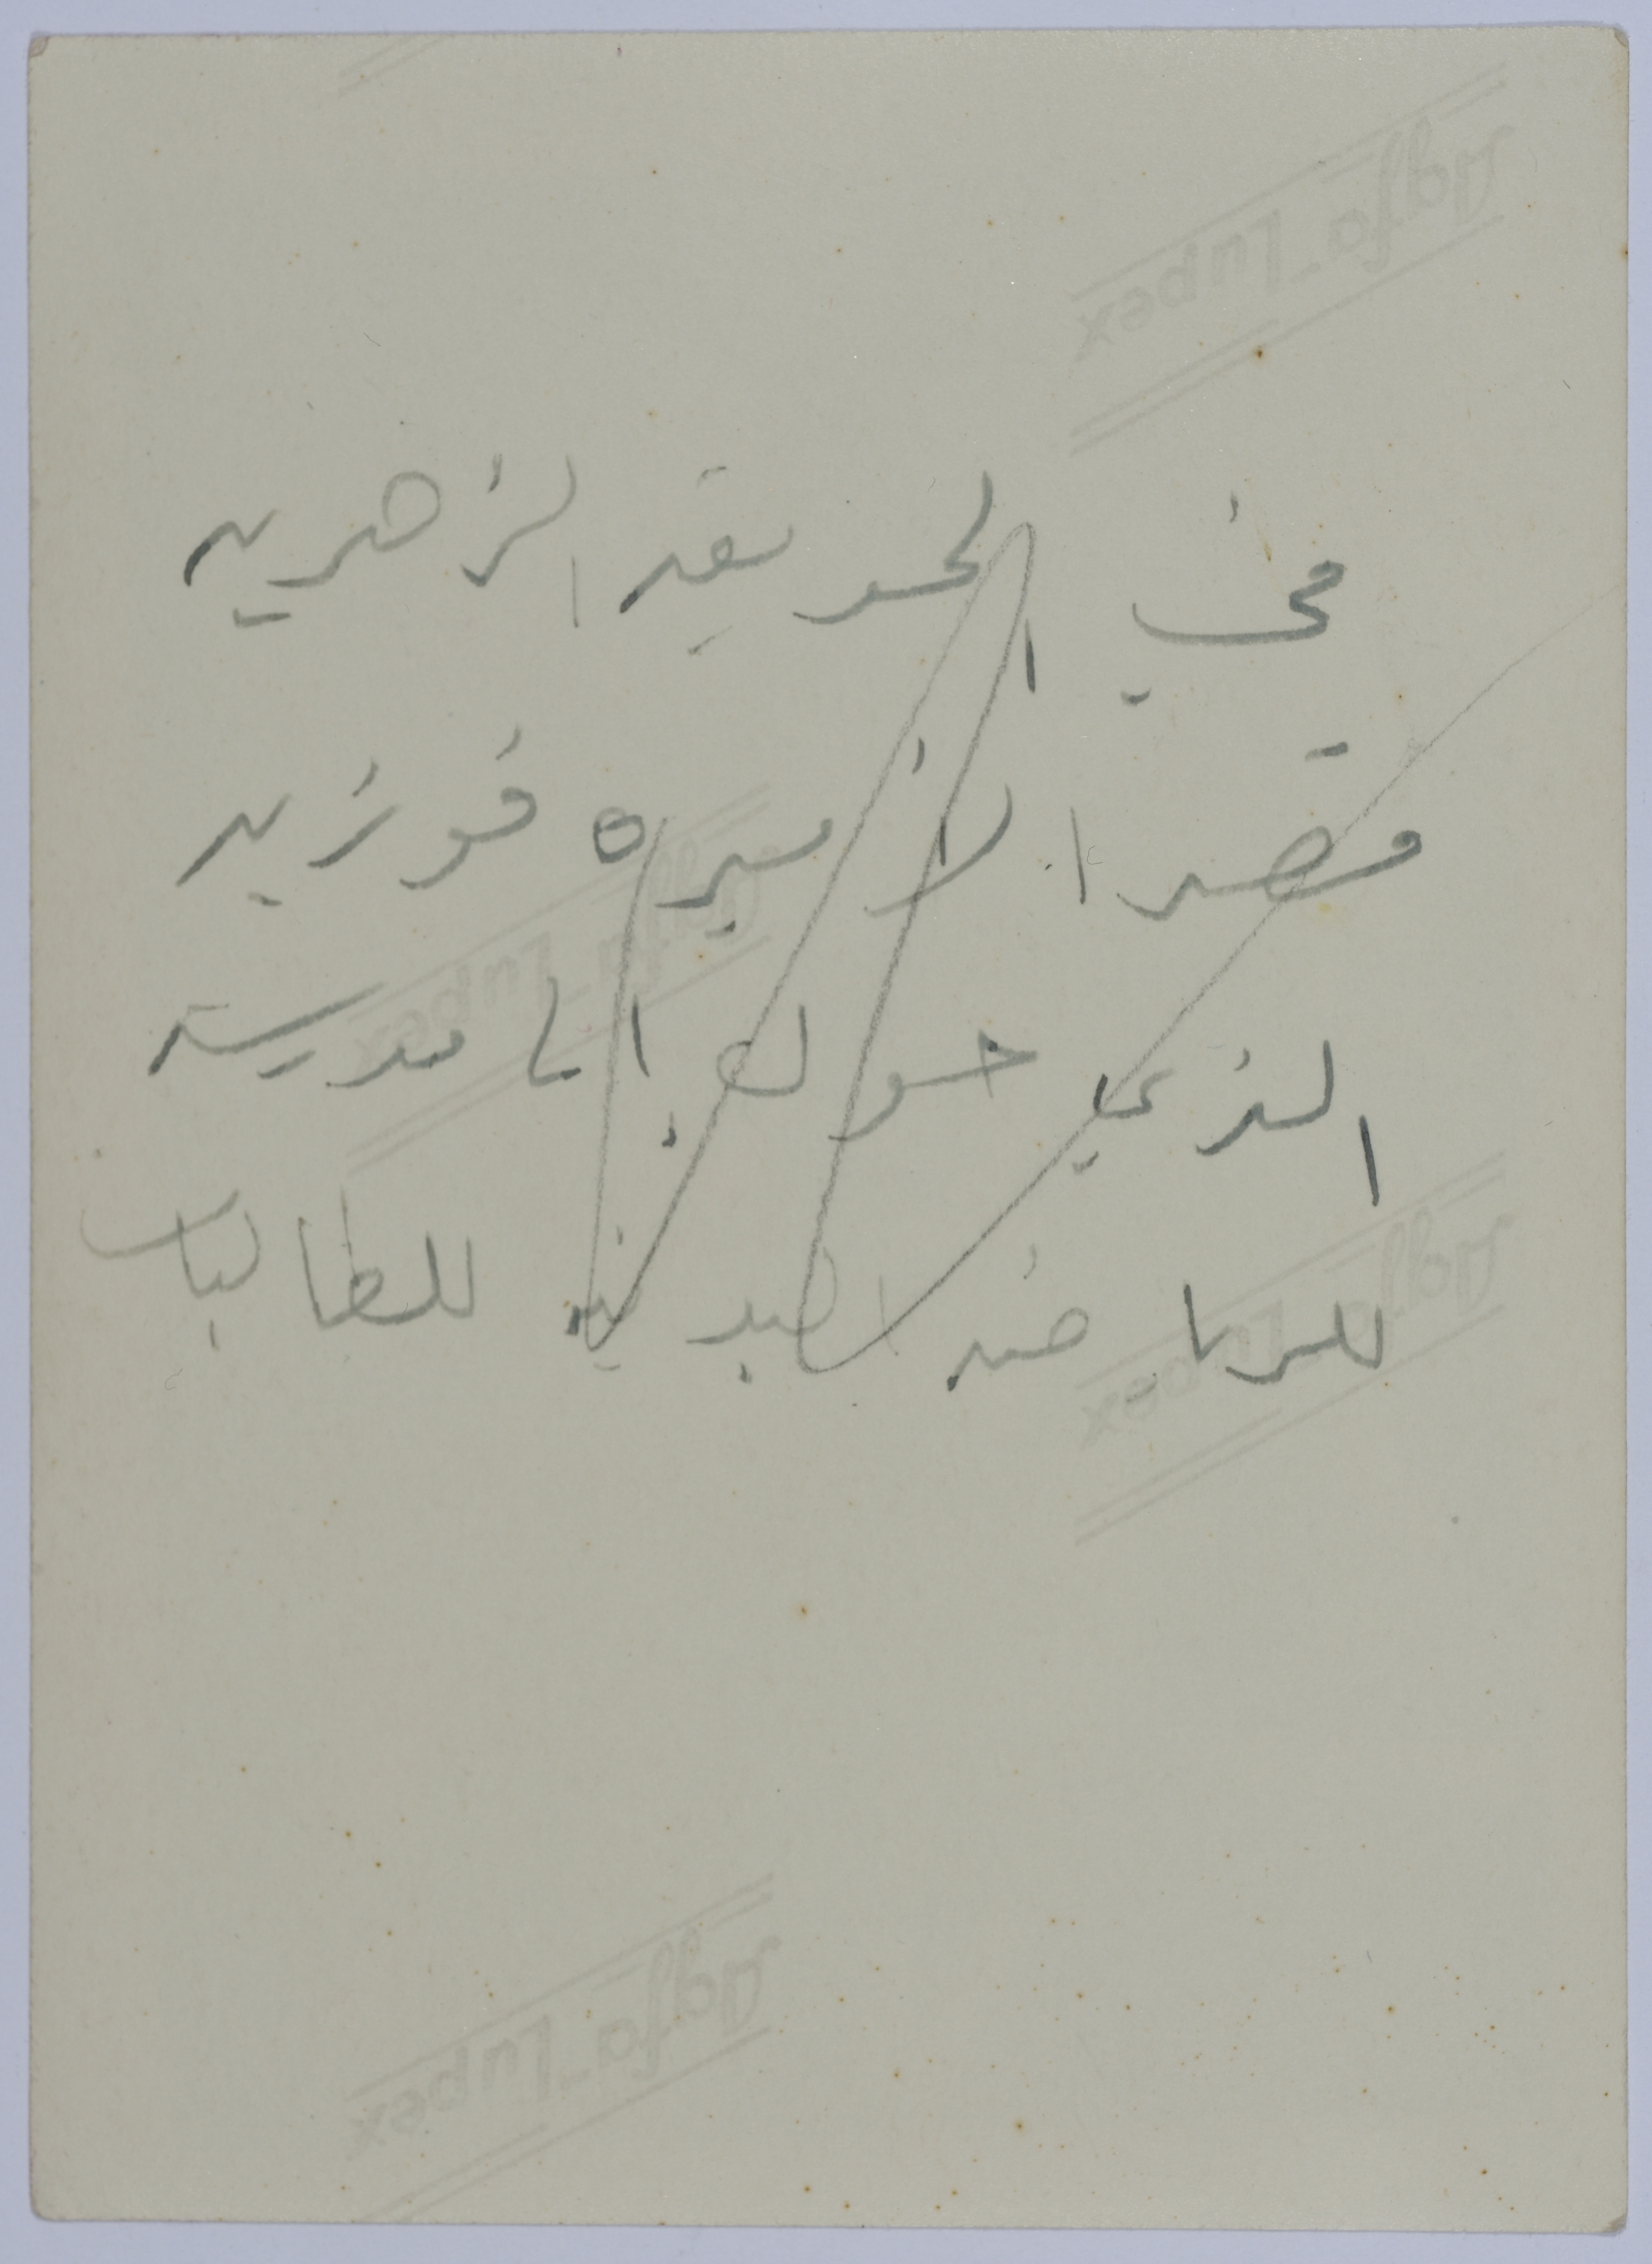 في الحديقه الزهريه
قصر الاميره فوزيه
الذي حول الى مدرسه
للرياضه البدنيه للطالبات
Agfa-Lupex
Agfa-Lupex
Agfa-Lupex
Agfa-Lupex